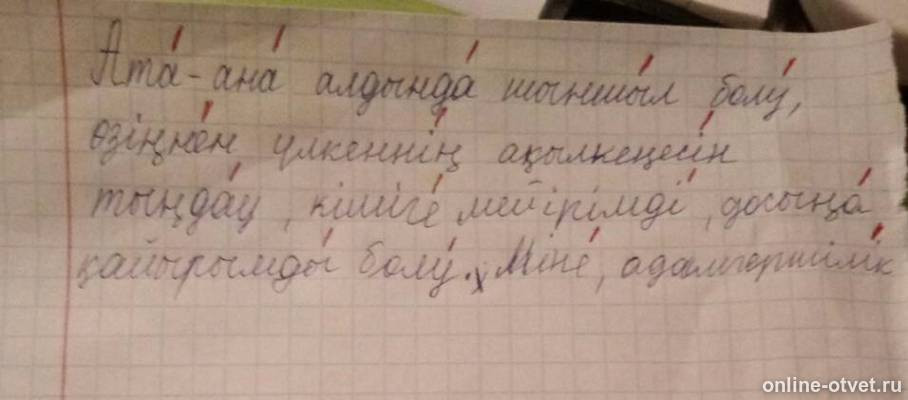 Ата-ана алдында шыншыл болу,
өзіңнен үлкеннің ақылкеңесін
тыңдау, кішіге мейірімді, досыңа
қайырымды болу. Міне, адамгершілік
online-otvet.ru